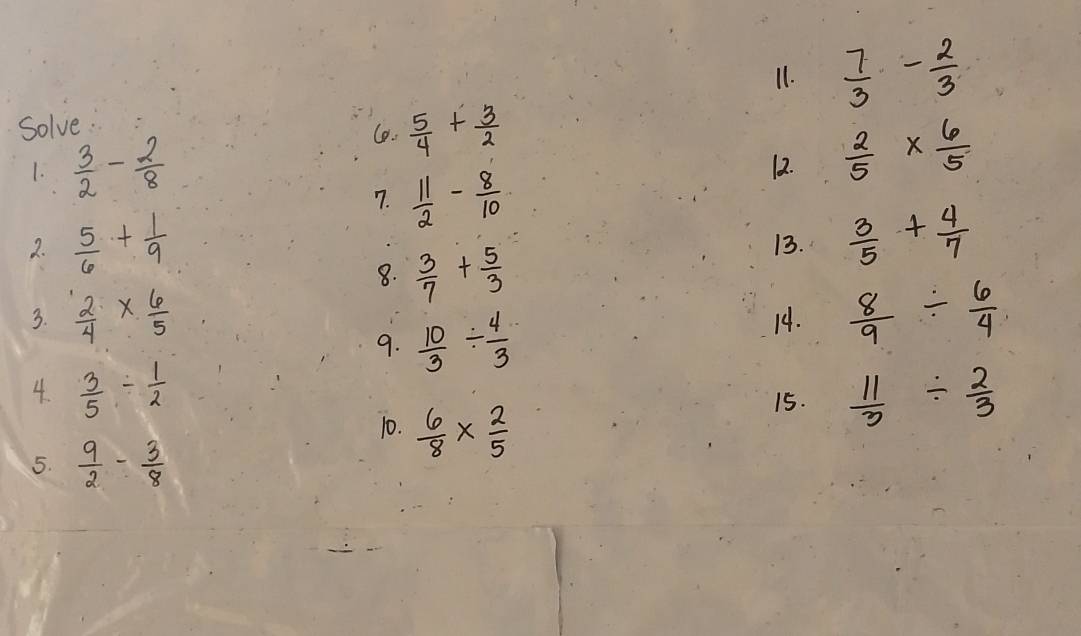 Solve
1. 3/2 - 2/8
2. 5/6 + 1/9
3. 2/4 × 6/5
4. 3/5 ÷ 1/2
5. 9/2 - 3/8
6. 5/4 + 3/2
7. 11/2 - 8/10
8. 3/7 + 5/3
9. 10/3 ÷ 4/3
10. 6/8 × 2/5
11. 7/3 - 2/3
12. 2/5 × 6/5
13. 3/5 + 4/7
14. 8/9 ÷ 6/4
15. 11/3 ÷ 2/3